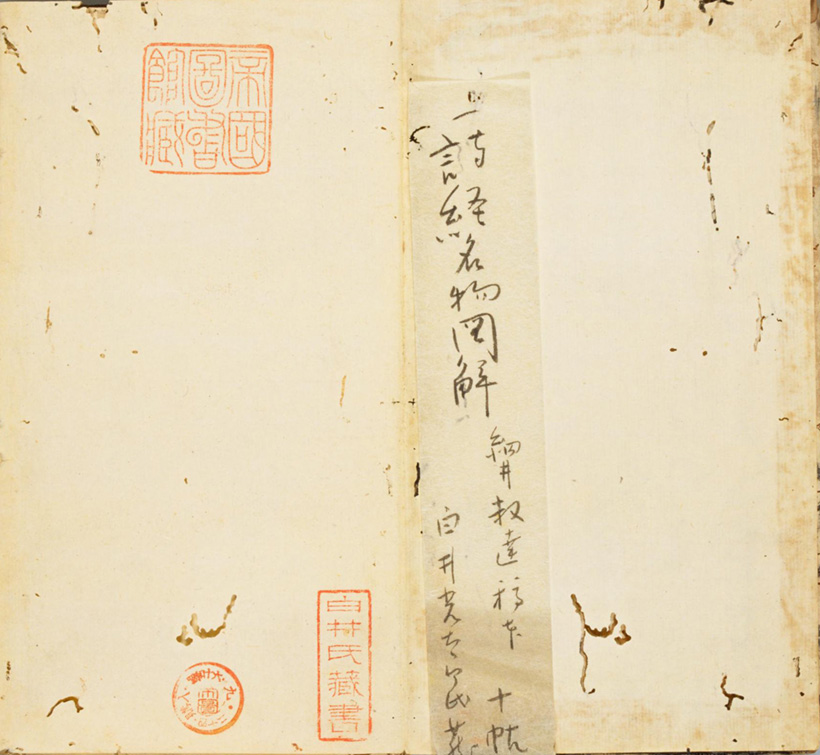 詩経名物図解
細井叔達稿本 十帖
白井光太郎氏蔵
帝國
圖書
館藏
白井氏藏書